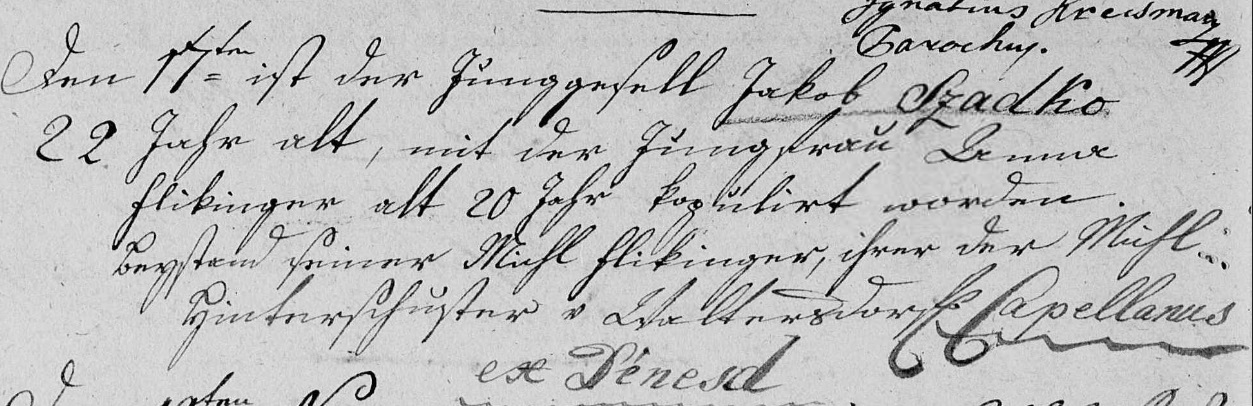 Ignatius Kreisman
Parochus.
Den 17ten ist der Junggesell Jakob Szadko
22 Jahr alt, mit der Jungfrau Anna
Flikinger alt 20 Jahr kopulirt worden.
Beystand seiner Michl Flikinger, ihrer der Michl
Hinterschuster v Waltersdorf Capellanus
ex Dénesd